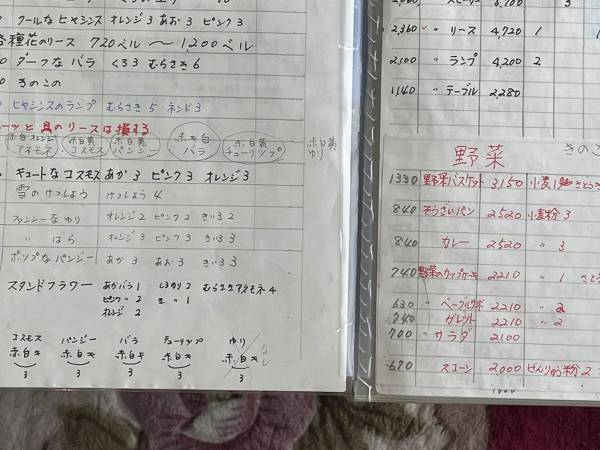 クールな ヒヤシンス オレンジ 3 あお 3 ピンク 3
各種花のリース 720ベル 〜 1,200ベル
ダークな バラ くろ3 むらさき 6
きのこの
ヒヤシンスのランプ むらさき 5 ネンド 3
ーツと 具のリースは損する
赤白オレンジ アネモネ
赤白黄 コスモス
赤白黄 パンジー
赤白 バラ
赤白黄 チューリップ
赤白黄 ゆり
キュートな コスモス あか 3 ピンク 3 オレンジ 3
雪の けっしょう けっしょう 4
ファンシーな ゆり オレンジ 2 ピンク 2 きいろ 2
〃 ばら オレンジ 3 ピンク 3 きいろ 3
ポップな パンジー あか 3 あお 3 きいろ 3
スタンドフラワー あかバラ 1 しろゆり 2 むらさきアネモネ 4
ピンク〃 2 〃 1
オレンジ 2
コスモス パンジー バラ チューリップ ゆり
赤白キ 赤白キ 赤白キ 赤白キ 赤白キ
3 3 3 3 3
2,360 〃 リース 4,720 1
2,100 〃 ランプ 4,200 2
1,140 〃 テーブル 2,280
野菜 きのこ
1330 野菜バスケット 3150 小麦 1 さとう
840 そうざいパン 2520 小麦粉 3
840 カレー 2520 〃 3
740 野菜のカップケーキ 2210 〃 1 さとう
630 〃 ベーグルサンド 2210 〃 2
740 〃 ガレット 2210 〃 2
700 〃 サラダ 2100
670 スコーン 2,000 ぜんりゅう粉 2